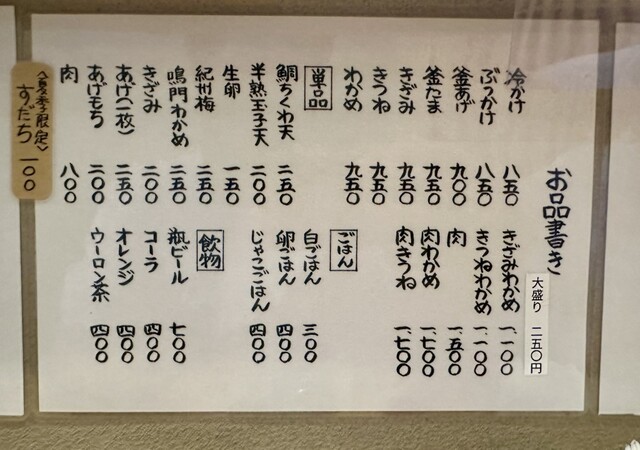 お品書き
大盛り 二五〇円
冷かけ 八五〇
ぶっかけ 八五〇
釜あげ 九〇〇
釜たま 九五〇
きざみ 九五〇
きつね 九五〇
わかめ 九五〇
きざみわかめ 一、一〇〇
きつねわかめ 一、一〇〇
肉 一、五〇〇
肉わかめ 一、七〇〇
肉きつね 一、七〇〇
単品
鯛ちくわ天 二五〇
半熟玉子天 二〇〇
生卵 一五〇
紀州梅 二五〇
鳴門わかめ 二五〇
きざみ 二〇〇
あげ(一枚) 二五〇
あげもち 二〇〇
肉 八〇〇
ごはん
白ごはん 三〇〇
卵ごはん 四〇〇
じゃこごはん 四〇〇
飲物
瓶ビール 七〇〇
コーラ 四〇〇
オレンジ 四〇〇
ウーロン茶 四〇〇
〈夏季限定〉
すだち 一〇〇